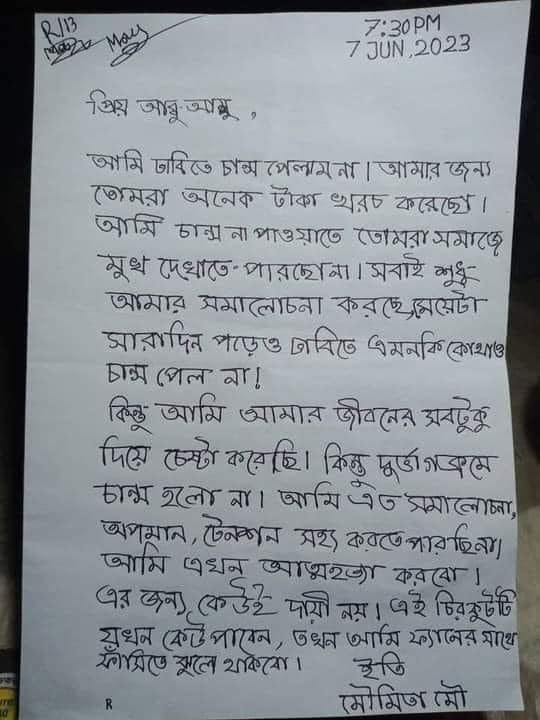 R/13
May
7:30PM
7 JUN, 2023
প্রিয় আব্বু-আম্মু,
আমি ঢাবিতে চান্স পেলাম না। আমার জন্য
তোমরা অনেক টাকা খরচ করেছো।
আমি চান্স না পাওয়াতে তোমরা সমাজে
মুখ দেখাতে পারছো না। সবাই শুধু
আমার সমালোচনা করছে, মেয়েটা
সারাদিন পড়েও ঢাবিতে এমনকি কোথাও
চান্স পেল না!
কিন্তু আমি আমার জীবনের সবটুকু
দিয়ে চেষ্টা করেছি। কিন্তু দুর্ভাগ্যক্রমে
চান্স হলো না। আমি এত সমালোচনা,
অপমান, টেনশন সহ্য করতে পারছি না।
আমি এখন আত্মহত্যা করবো।
এর জন্য কেউই দায়ী নয়। এই চিরকুটটি
যখন কেউ পাবেন, তখন আমি ফ্যানের সাথে
ফাঁসিতে ঝুলে থাকবো।
ইতি
মৌমিতা মৌ
R